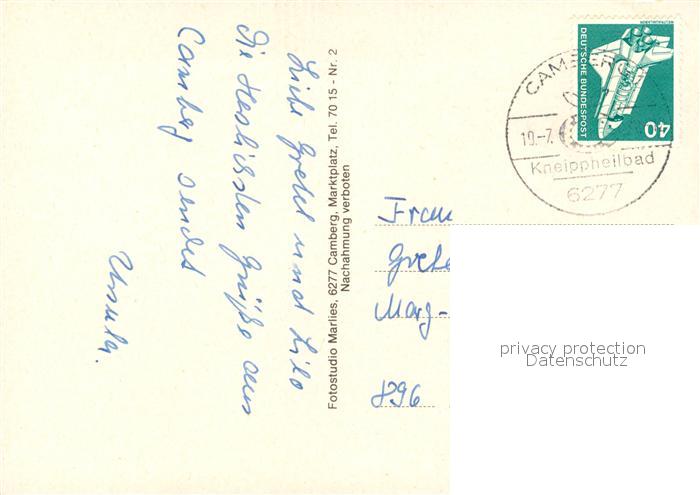 Liebe Gretel und Lilo
die Herzlichsten Grüße aus
Camberg sendet
Ursula.
Fotostudio Marlies, 6277 Camberg, Marktplatz, Tel. 70 15 - Nr. 2
Nachahmung verboten
DEUTSCHE BUNDESPOST
40
CAMBERG
19.-7.
Kneippheilbad
6277
Frau
Grete
Marg-
896
privacy protection
Datenschutz